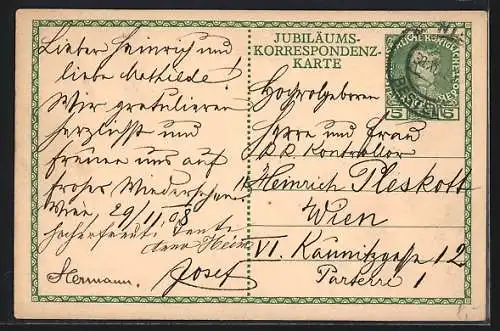 Lieber Heinrich und
liebe Mathilde!
Wir gratulieren
herzlichst und
freuen uns auf
frohes Wiedersehen
Wien, 29/11 08
Hermann. Josef
JUBILÄUMS-
KORRESPONDENZ-
KARTE
5 5
Hochwolgeboren
Herrn und Frau
k.k. Kontrollor
Heinrich Pleskott
Wien
VI. Kaunitzgasse 12
Parterre 1